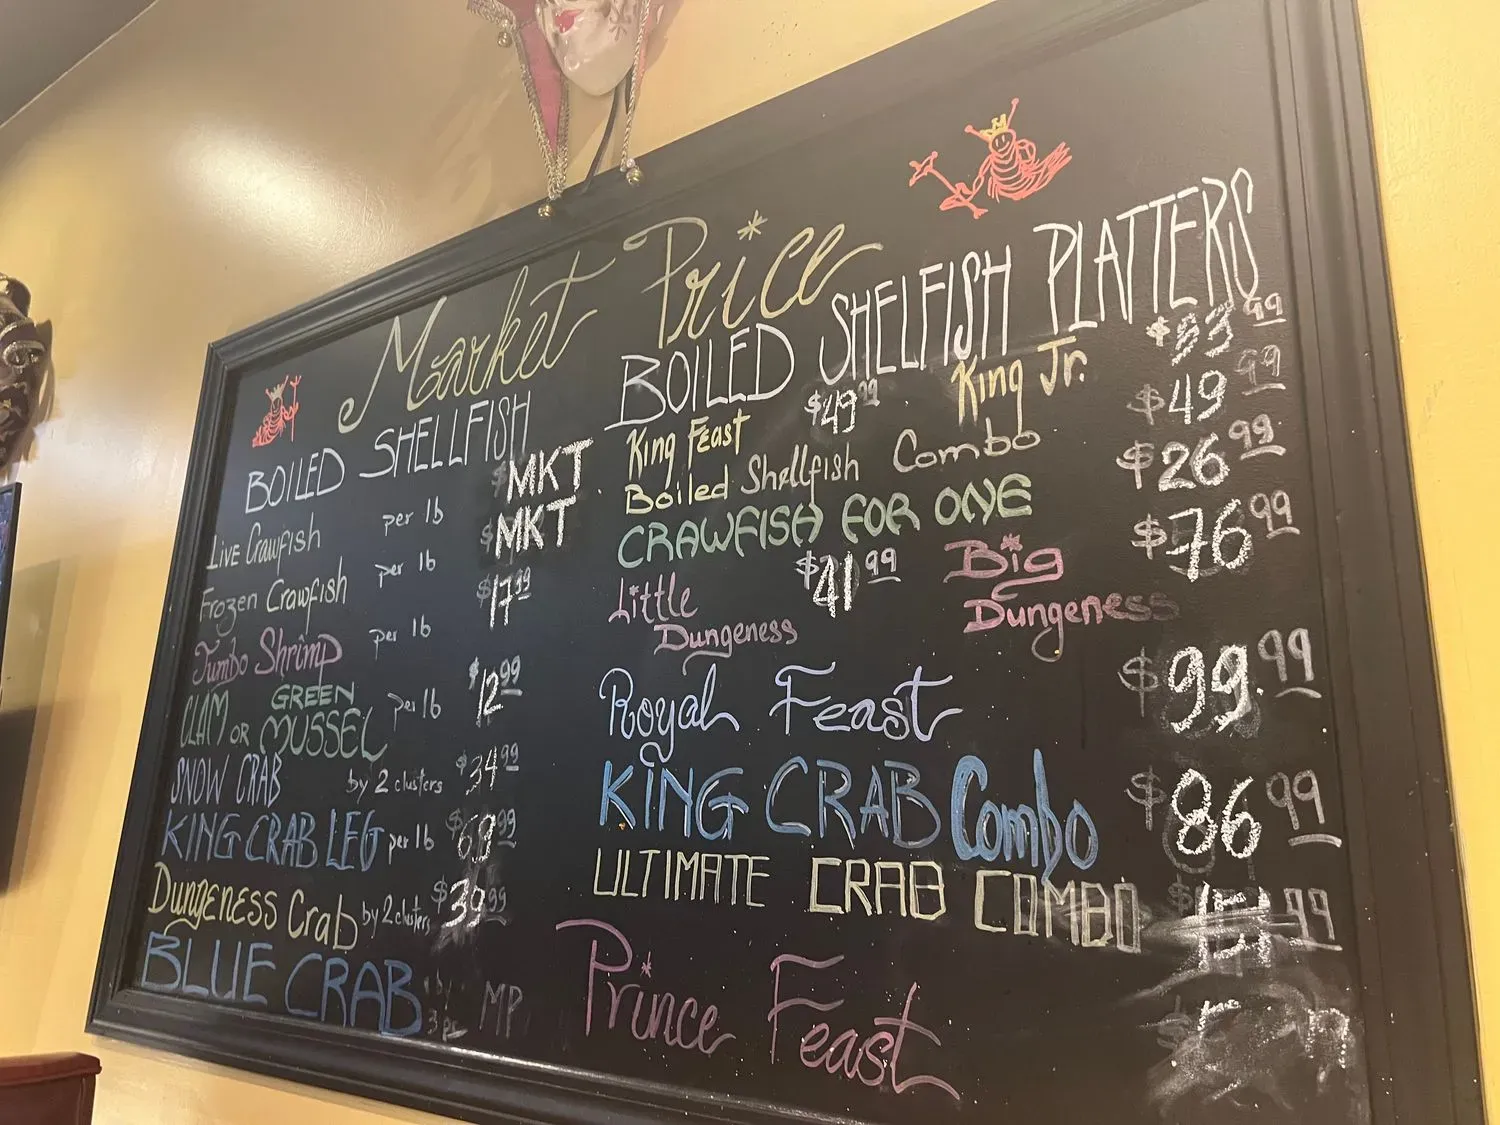 Market Price
BOILED SHELLFISH
Live Crawfish per lb $MKT
Frozen Crawfish per lb $MKT
Jumbo Shrimp per lb $17.99
CLAM OR GREEN MUSSEL per lb $12.99
SNOW CRAB by 2 clusters $34.99
KING CRAB LEG per lb $68.99
DUNGENESS Crab by 2 clusters $39.99
BLUE CRAB MP
BOILED SHELFISH PLATTERS
King Feast $49.99 King Jr. $53.99
Boiled Shellfish Combo $49.99
CRAWFISH FOR ONE $26.99
Little Dungeness $41.99 Big Dungeness $76.99
Royal Feast $99.99
KING CRAB Combo $86.99
ULTIMATE CRAB COMBO
Prince Feast